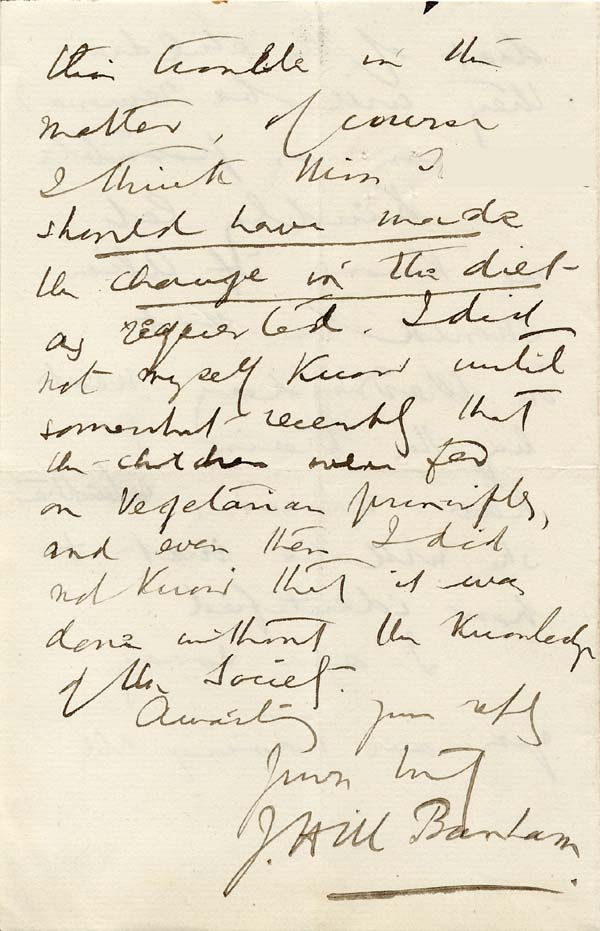 this trouble in the
matter, of course
I think Miss
should have made
the change in the diet
as requested. I did
not myself know until
somewhat recently that
the children were fed
on Vegetarian principles,
and even then I did
not know that it was
done without the knowledge
of the Society.
Awaiting your reply
Yours truly
J. Hill